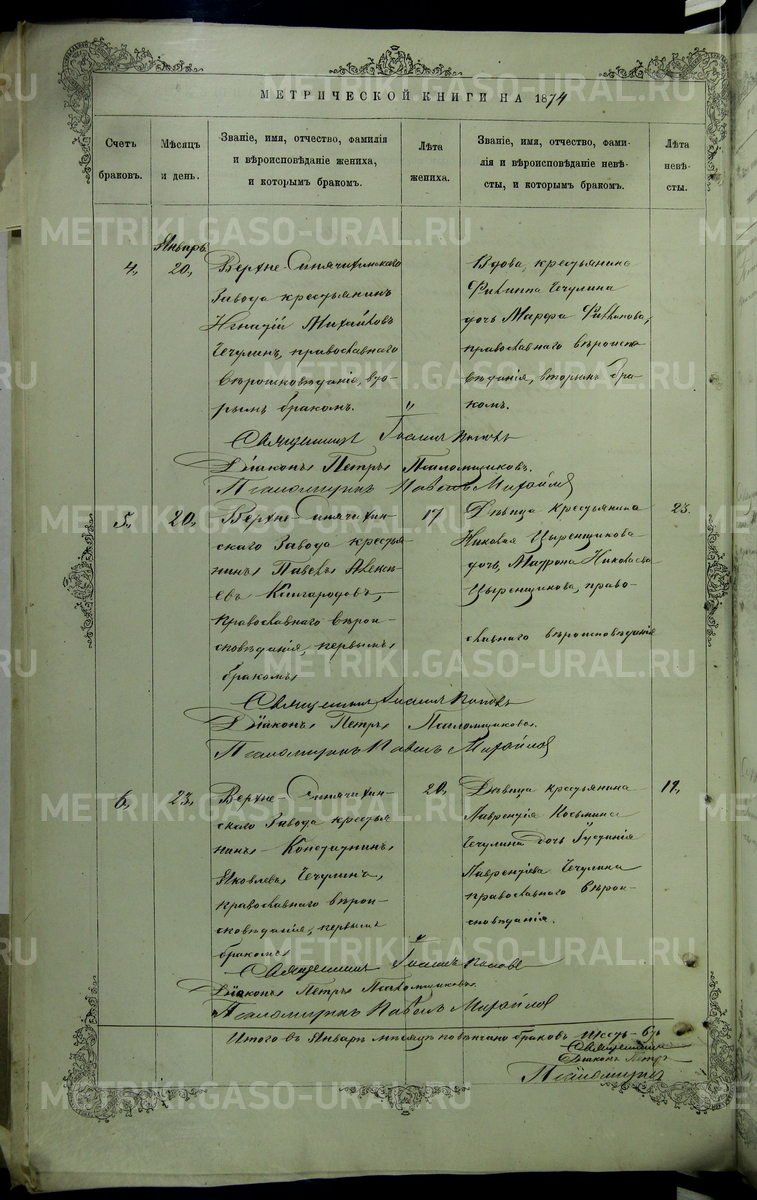 МЕТРИЧЕСКОЙ КНИГИ НА 1874
Счетъ
браковъ.
Мѣсяцъ
и день.
Званіе, имя, отчество, фамилія
и вѣроисповѣданіе жениха,
и которымъ бракомъ.
Лѣта
жениха.
Званіе, имя, отчество, фами-
лія и вѣроисповѣданіе невѣ-
сты, и которымъ бракомъ.
Лѣта
невѣ-
сты.
Январь
4,
20,
Верхне-Синячихинскаго
Завода крестьянинъ
Игнатій Михайловъ
Чечулинъ, православнаго
вѣроисповѣданія, вто-
рымъ бракомъ.
Вдова, крестьянина
Филиппа Чечулина
дочь Марфа
православнаго вѣроиспо-
вѣданія, вторымъ бра-
комъ.
Священникъ Іоаннъ Поповъ
Діаконъ Петръ Псаломщиковъ.
Псаломщикъ Павелъ Михайлов
5,
20,
Верхне-Синячихин-
скаго Завода крестья
нинъ Павелъ Алексѣ-
евъ
православнаго вѣрои-
сповѣданія, первымъ
бракомъ
17
Дѣвица крестьянина
Николая Цыренщикова
дочь, Матрона Николаева
Цыренщикова, право-
славнаго вѣроисповѣданія
23.
Священникъ Іоаннъ Поповъ
Діаконъ Петръ Псаломщиковъ.
Псаломщикъ Павелъ Михайлов
6,
23,
Верхне-Синячихин-
скаго Завода крестья
нинъ Константинъ
Яковлевъ Чечулинъ,
православнаго вѣрои-
сповѣданія, первымъ
бракомъ
20,
Дѣвица крестьянина
Лаврентія Косьмина
Чечулина дочь Іустинія
Лаврентіева Чечулина
православнаго вѣрои-
сповѣданія.
19,
Священникъ Іоаннъ Поповъ
Діаконъ Петръ Псаломщиковъ.
Псаломщикъ Павелъ Михайлов
Итого въ Январѣ мѣсяцѣ повѣнчано браковъ шесть-6ть
Священникъ
Діаконъ Петръ
Псаломщикъ
METRIKI.GASO-URAL.RU